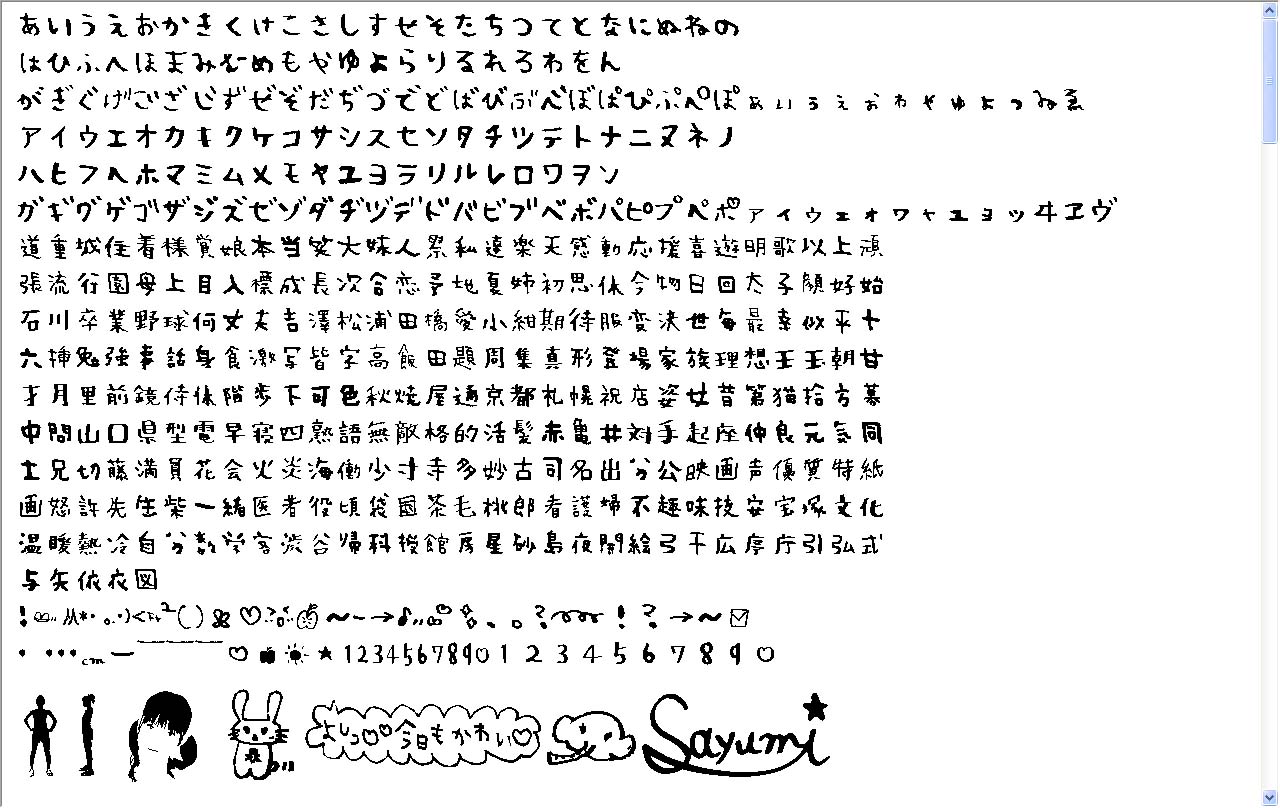 あいうえおかきくけこさしすせそたちつてとなにぬねの
はひふへほまみむめもやゆよらりるれろわをん
がぎぐげござじずぜぞだぢづでどばびぶべぼぱぴぷぺぽぁぃぅぇぉゎゃゅょっゐゑ
アイウエオカキクケコサシスセソタチツテトナニヌネノ
ハヒフヘホマミムメモヤユヨラリルレロワヲン
ガギグゲゴザジズゼゾダヂヅデドバビブベボパピプペポァィゥェォヮャュョッヰヱヴ
道重城住着様覚娘本当笑大妹人祭私達楽天感動応援喜遊明歌以上頑
張流行園母上目入標成長次合恋予地夏姉初思休今物日回犬子顔好始
石川卒業野球何丈夫吉澤松浦田橋愛小紺期待服変決世毎最幸似平十
六挿勉強事話身食激写皆字高飯田題周集真形登場家族理想王玉朝甘
才月里前鏡侍係階歩下可色秋焼屋通京都札幌祝店姿女昔第猫拾方募
中間山口県型電早寝四熟語無敵格的活髪赤亀井対手起座仲良元気同
士兄切藤満員花会火炎海働少寸寺多妙古司名出分公映画声優質特紙
画怒許先生柴一緒医者役頃袋国茶毛桃郎者護婦不趣味技安宝塚文化
温暖熱冷自分数学客渋谷帰科授館房星砂島夜開絵弓干広亭庁引弘式
与矢依衣図
! 2 ( ) ♡ 〜 ー → ♪ 、 。 ? ! ? → 〜
・ … cm ー ♡ ★ 1234567890 1 2 3 4 5 6 7 8 9 0
よしっ♡♡今日もかわいい♡ Sayumi ★